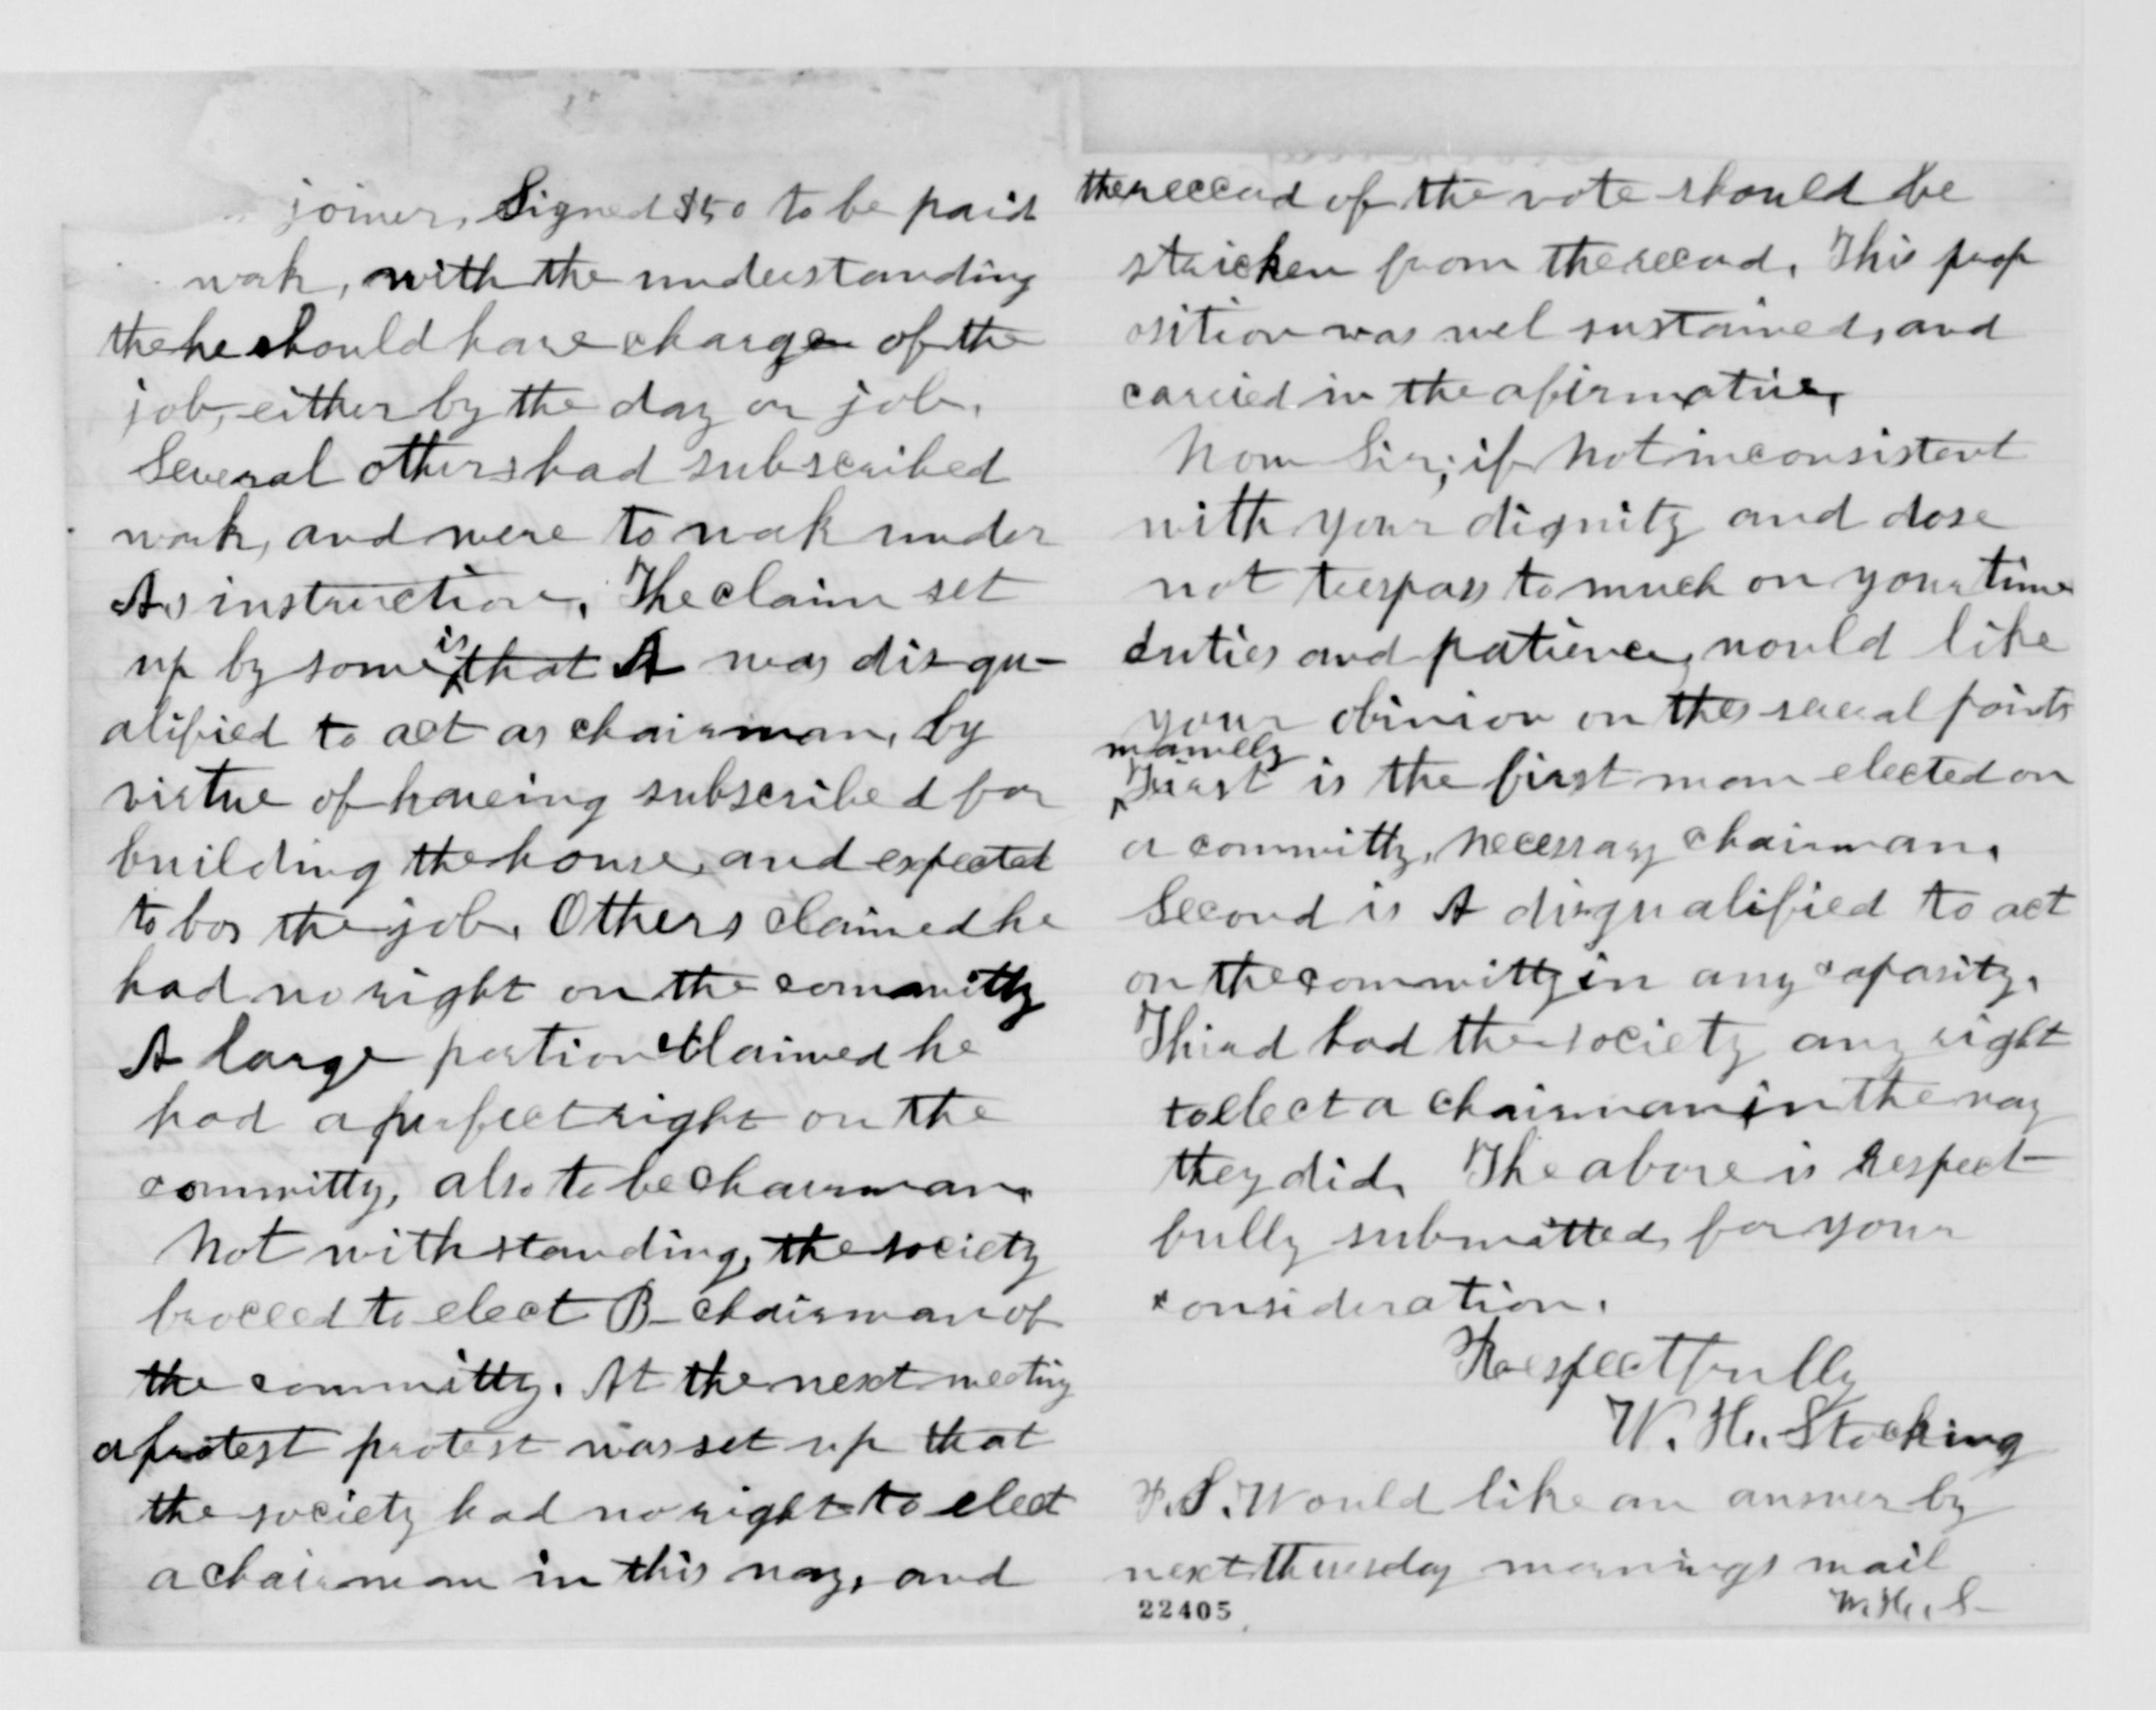 joiner, Signed $50 to be paid
work, with the understanding
the he should have charge of the
job, either by the day or job.
Several others had subscribed
work, and were to work under
As instruction. The claim set
up by some is that A was disqu-
alified to act as chairman, by
virtue of haveing subscribed for
building the house, and expected
to bos the job. Others claimed he
had no right on the committy
A large portion claimed he
had a perfect right on the
committy, also to be chairman.
Not with standing, the society
proceed to elect B- chairman of
the committy. At the next meeting
a protest protest was set up that
the society had no right to elect
a chairman in this way, and
the reccord of the vote should be
stricken from the reccord. This prop
osition was wel sustained, and
carried in the afirmative.
Now Sir; if not inconsistent
with your dignity and dose
not trespass to much on your time
duties and patience, would like
your opinion on thes several points
namelly
First is the first man elected on
a committy, necessary chairman.
Second is A disqualified to act
on the committy in any capasity.
Third had the society any right
to elect a chairman in the way
they did. The above is respect-
fully submitted, for your
consideration.
Respectfully
W. H. Stocking
P.S. Would like an answer by
next thuesday mornings mail
W. H. S-
22405